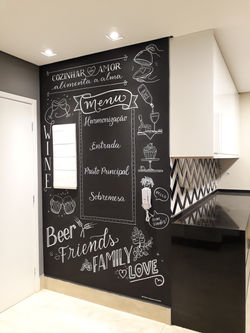 COZINHAR AMOR
alimenta a alma
Menu
Harmonização
Entrada
Prato Principal
Sobremesa
WINE
Beer
Friends
FAMILY
LOVE